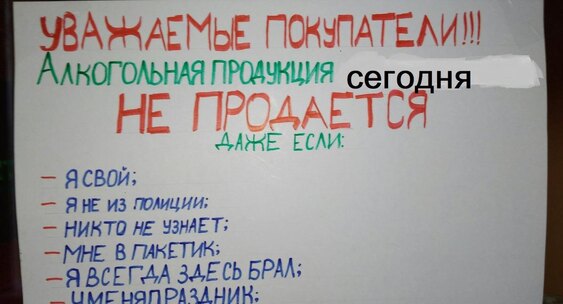 УВАЖАЕМЫЕ ПОКУПАТЕЛИ!!!
АЛКОГОЛЬНАЯ ПРОДУКЦИЯ сегодня
НЕ ПРОДАЕТСЯ
ДАЖЕ ЕСЛИ:
– Я СВОЙ;
– Я НЕ ИЗ ПОЛИЦИИ;
– НИКТО НЕ УЗНАЕТ;
– МНЕ В ПАКЕТИК;
– Я ВСЕГДА ЗДЕСЬ БРАЛ;
– У МЕНЯ ПРАЗДНИК;